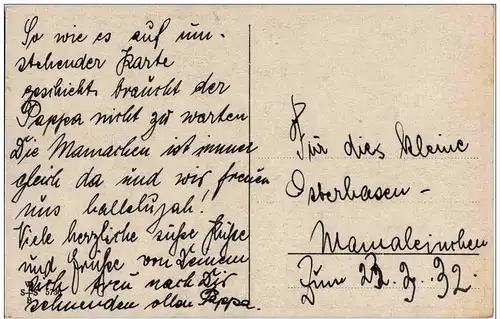 So wie es auf um-
stehender Karte
geschieht braucht der
Pappa nicht zu warten
Die Mamachen ist immer
gleich da und wir freuen
uns hallelujah!
Viele herzliche süße Küße
und Grüße von Deinem
sich treu nach Dir
sehnenden ollen Pappa.
Für dies kleine
Osterhasen-
Mamaleinchen
Zum 27. 3. 32.